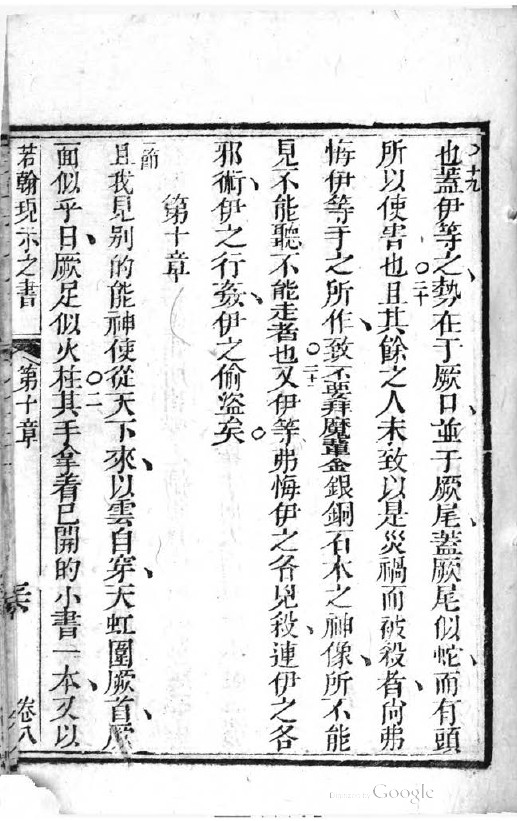 十九
也蓋伊等之勢在于厥口並于厥尾蓋厥尾似蛇而有頭
所以使害也○二十且其餘之人未致以是災禍而被殺者尚弗
悔伊等手之所作致不要拜魔輩金銀銅石木之神像所不能
見不能聽不能走者也○二十一又伊等弗悔伊之各兇殺連伊之各
邪術伊之行姦伊之偷盜矣○
第十章
一節
且我見別的能神使從天下來以雲自穿天虹圍厥首厥
面似乎日厥足似火柱○二其手拿着已開的小書一本又以
若翰現示之書 第十章 卷八
Digitized by Google